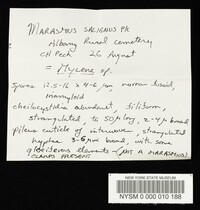 MARASMIUS SALIGNUS PK
Albany Rural Cemetery
CH Peck 26 August
= Mycena sp.
Spores 12.5-16 x 4-6 µm narrow fusoid,
inamyloid
cheilocystidia abundant, filiform,
strangulated, to 50 µ long, 2-4 µm broad
pileus cuticle of interwoven, strangulated
hyphae 3-6 µm broad, with some
gloeiferous elements - (NOT A MARASMIUS)
CLAMPS PRESENT
NEW YORK STATE MUSEUM
NYSM 0 000 010 188